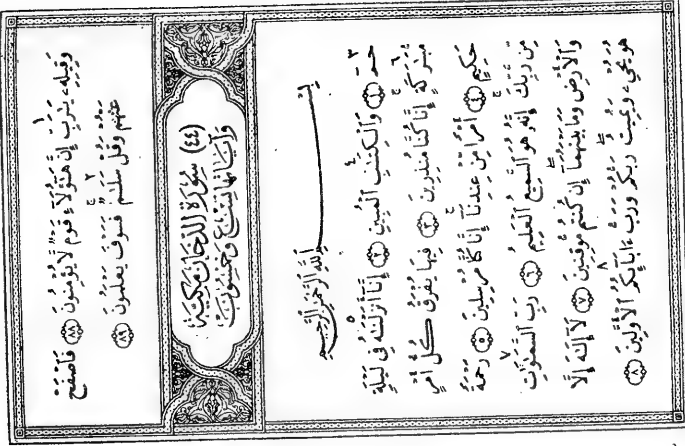 وَقِيلِهِۦ يَـٰرَبِّ إِنَّ هَـٰٓؤُلَآءِ قَوْمٌ لَّا يُؤْمِنُونَ ١ ﴿٨٨﴾ فَٱصْفَحْ
عَنْهُمْ وَقُلْ سَلَـٰمٌ ٢ ۚ فَسَوْفَ يَعْلَمُونَ ﴿٨٩﴾
(٤٤) سُورَةُ الدُّخَانِ مَكِّيَّةٌ
وَآيَاتُهَا تِسْعٌ وَخَمْسُونَ
بِسْمِ ٱللَّهِ ٱلرَّحْمَـٰنِ ٱلرَّحِيمِ
حمٓ ٣ ﴿١﴾ وَٱلْكِتَـٰبِ ٱلْمُبِينِ ٤ ﴿٢﴾ إِنَّآ أَنزَلْنَـٰهُ فِى لَيْلَةٍ ٥
مُّبَـٰرَكَةٍ ٦ ۚ إِنَّا كُنَّا مُنذِرِينَ ﴿٣﴾ فِيهَا يُفْرَقُ كُلُّ أَمْرٍ
حَكِيمٍ ﴿٤﴾ أَمْرًا مِّنْ عِندِنَآ ۚ إِنَّا كُنَّا مُرْسِلِينَ ﴿٥﴾ رَحْمَةً
مِّن رَّبِّكَ ۚ إِنَّهُۥ هُوَ ٱلسَّمِيعُ ٱلْعَلِيمُ ﴿٦﴾ رَبِّ ٱلسَّمَـٰوَٰتِ ٧
وَٱلْأَرْضِ وَمَا بَيْنَهُمَآ ۖ إِن كُنتُم مُّوقِنِينَ ﴿٧﴾ لَآ إِلَـٰهَ إِلَّا
هُوَ يُحْىِۦ وَيُمِيتُ ۖ رَبُّكُمْ وَرَبُّ ءَابَآئِكُمُ ٨ ٱلْأَوَّلِينَ ﴿٨﴾